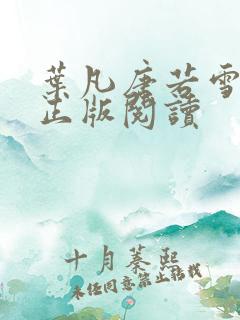 葉凡唐若雪
正版閱讀
十月蓁熙
未经同意禁止转载